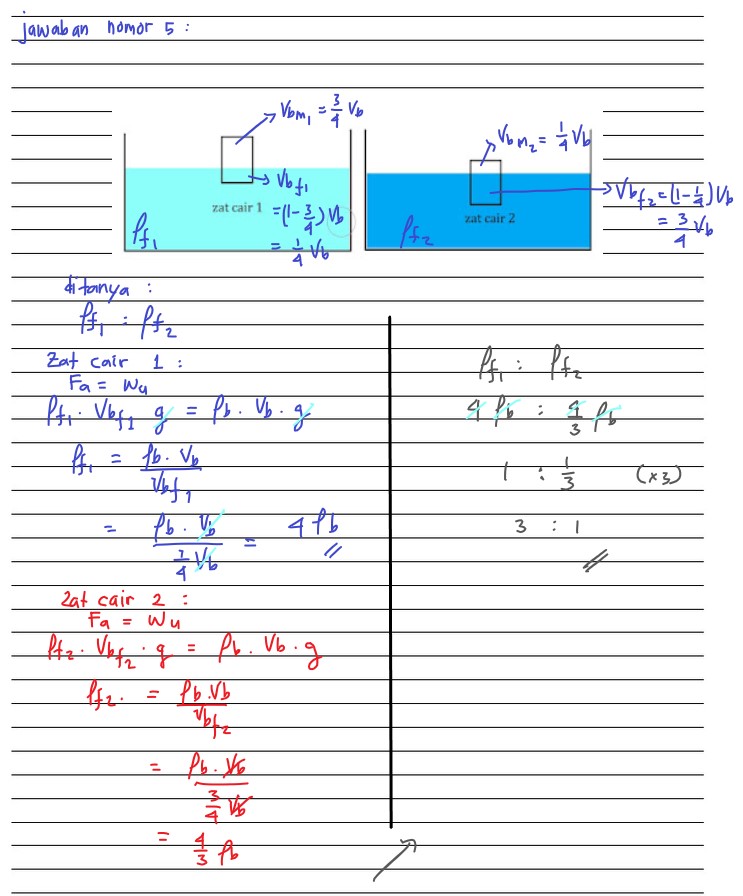 jawaban nomor 5 :
Vbm₁ = 3/4 Vb
Vbf₁
= (1 - 3/4) Vb
= 1/4 Vb
zat cair 1
ρf₁
Vbm₂ = 1/4 Vb
Vbf₂ = (1 - 1/4) Vb
= 3/4 Vb
zat cair 2
ρf₂
ditanya :
ρf₁ : ρf₂
Zat cair 1 :
Fa = Wu
ρf₁ . Vbf₁ g = ρb . Vb . g
ρf₁ = ρb . Vb / Vbf₁
= ρb . Vb / 1/4 Vb = 4 ρb
Zat cair 2 :
Fa = Wu
ρf₂ . Vbf₂ . g = ρb . Vb . g
ρf₂ . = ρb . Vb / Vbf₂
= ρb . Vb / 3/4 Vb
= 4/3 ρb
ρf₁ : ρf₂
4 ρb : 4/3 ρb
1 : 1/3 (x3)
3 : 1